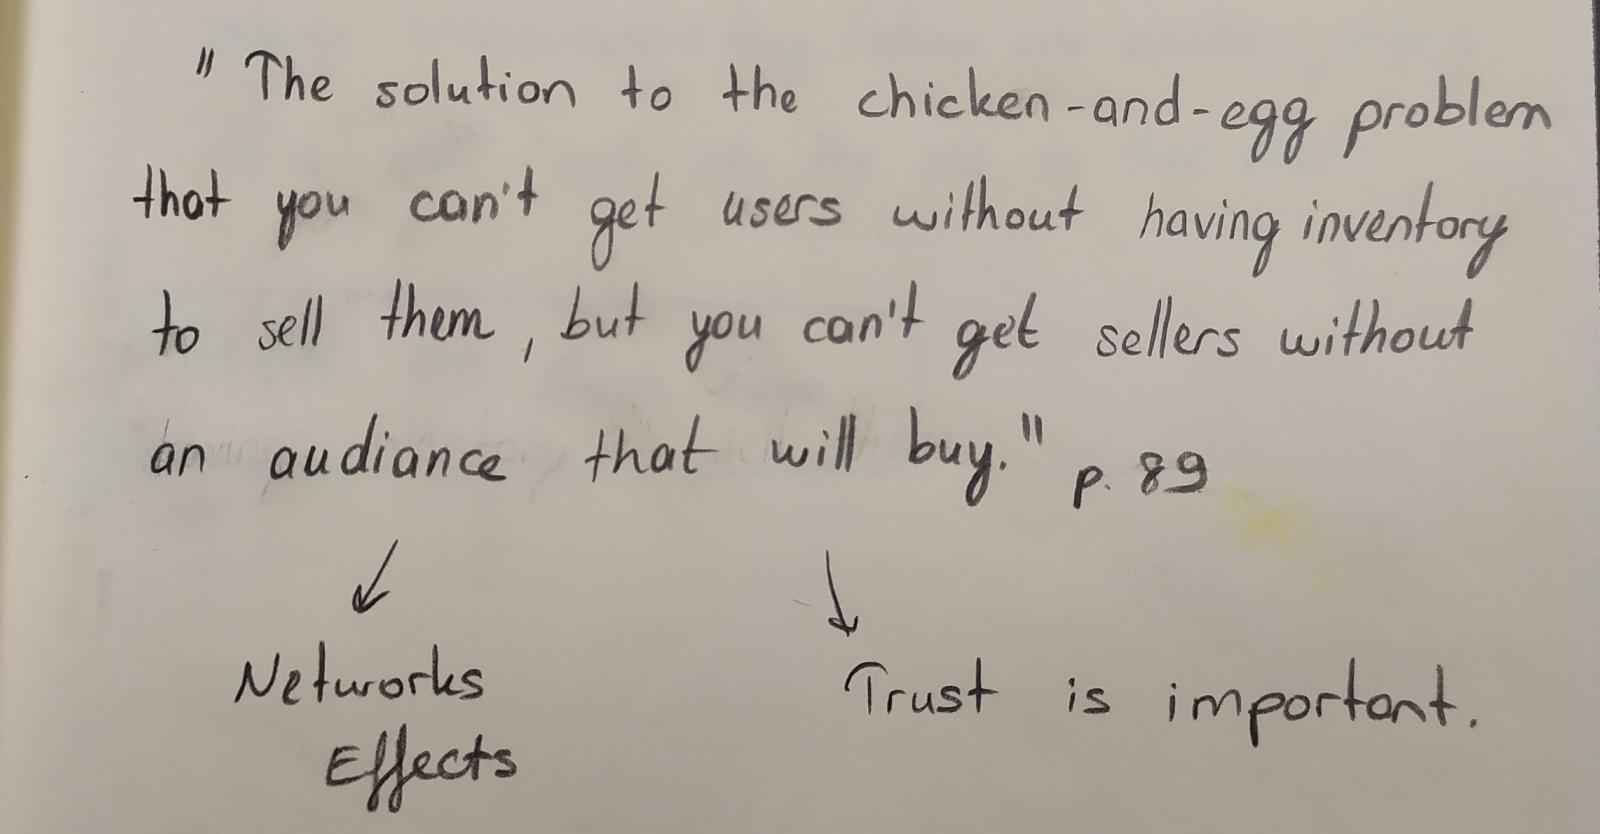 " The solution to the chicken-and-egg problem
that you can't get users without having inventory
to sell them, but you can't get sellers without
an audiance that will buy." p. 89
↙ ↓
Networks Trust is important.
Effects